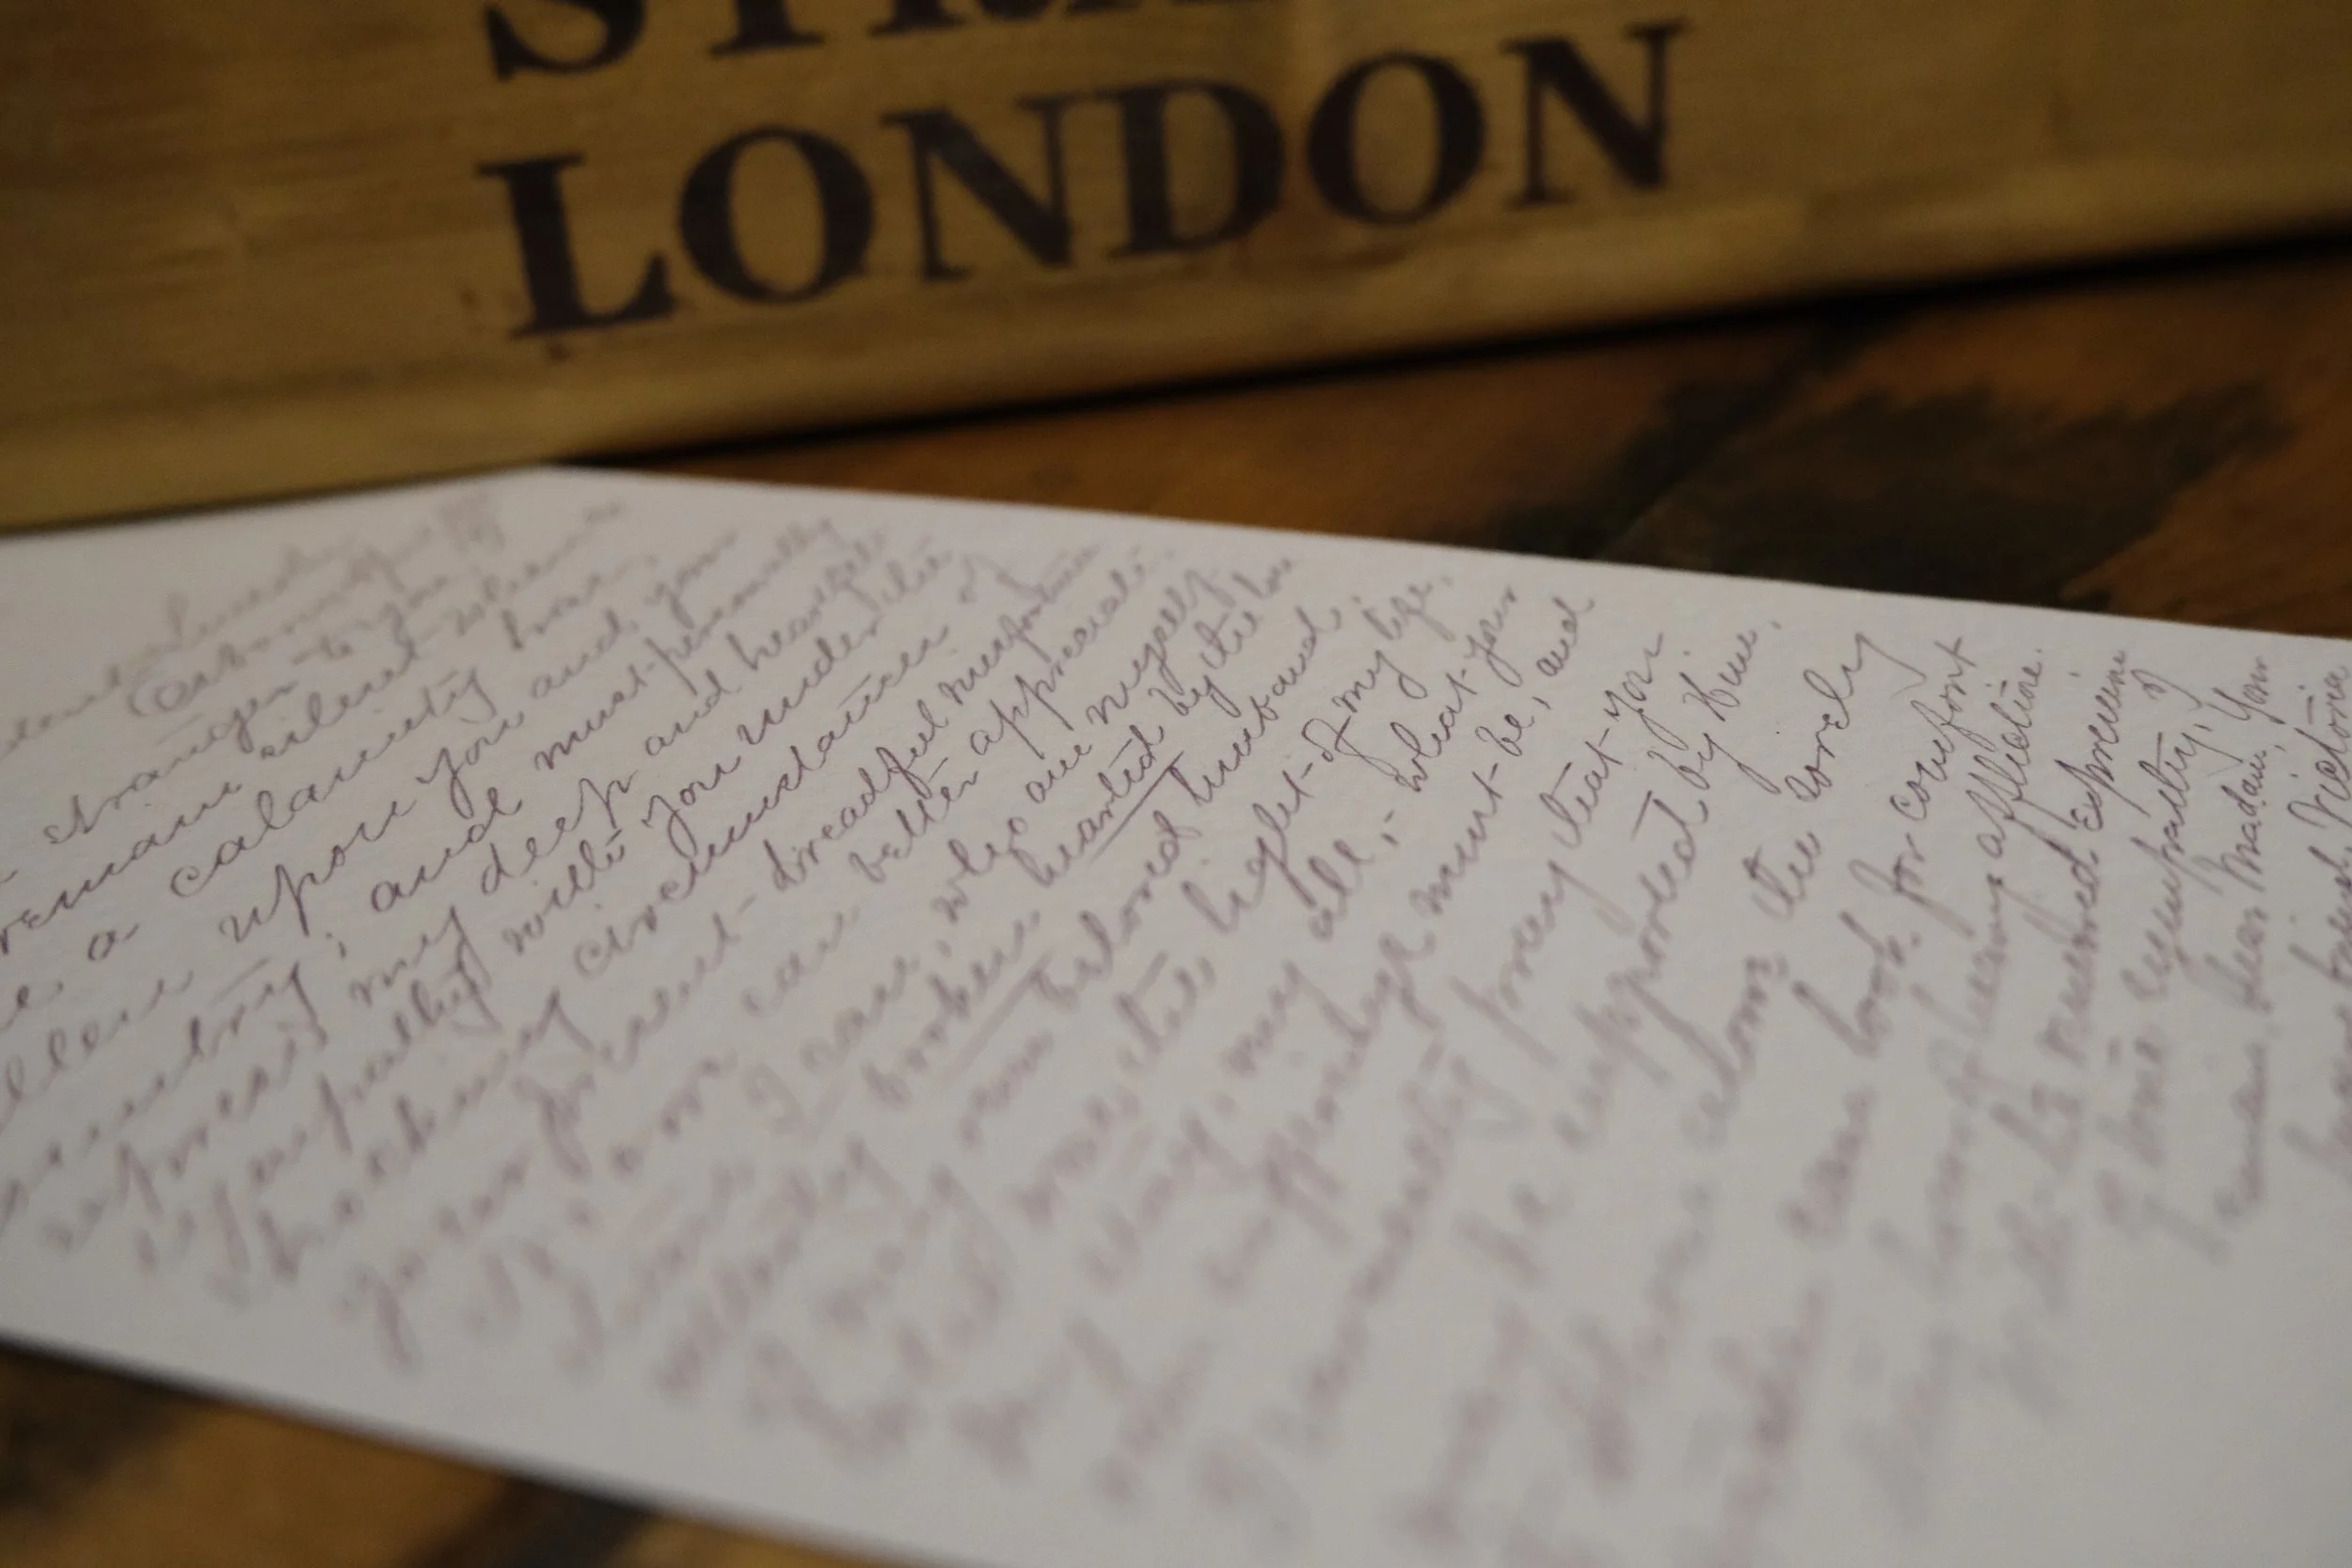 STRA
LONDON
Osborne
stranger to you
remain silent when
a calamity has
upon you and your
country; and must personally
express my deep and heartfelt
sympathy with you under the
circumstances of
your present dreadful misfortune
one can better appreciate
I can, who am myself
utterly broken hearted by the loss
my own beloved husband,
the light of my life,
stay, my all, – what your
must be, and
I earnestly pray that you
may be supported by Him,
whom alone the sorely
can look for comfort
hour of heavy affliction.
the renewed expression
of true sympathy,
I remain, dear Madam, Your
friend, Victoria